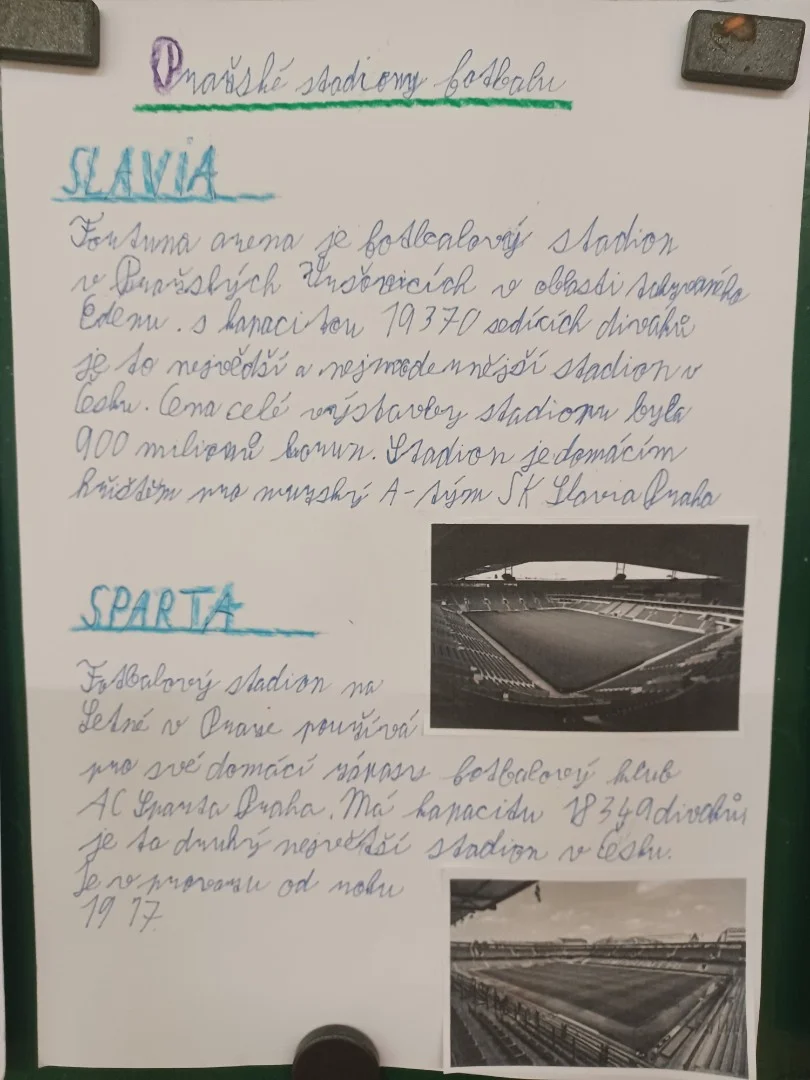 Pražské stadiony fotbalu
SLAVIA
Fortuna arena je fotbalový stadion
v Pražských Vršovicích v oblasti takzvaného
Edenu. s kapacitou 19370 sedících diváků
je to největší a nejmodernější stadion v
Česku. Cena celé výstavby stadionu byla
900 milionů korun. Stadion je domácím
hřištěm pro mužský A-tým SK Slavia Praha
SPARTA
Fotbalový stadion na
Letné v Praze používá
pro své domácí zápasy fotbalový klub
AC Sparta Praha. Má kapacitu 18349 diváků,
je to druhý největší stadion v Česku.
Je v provozu od roku
1917